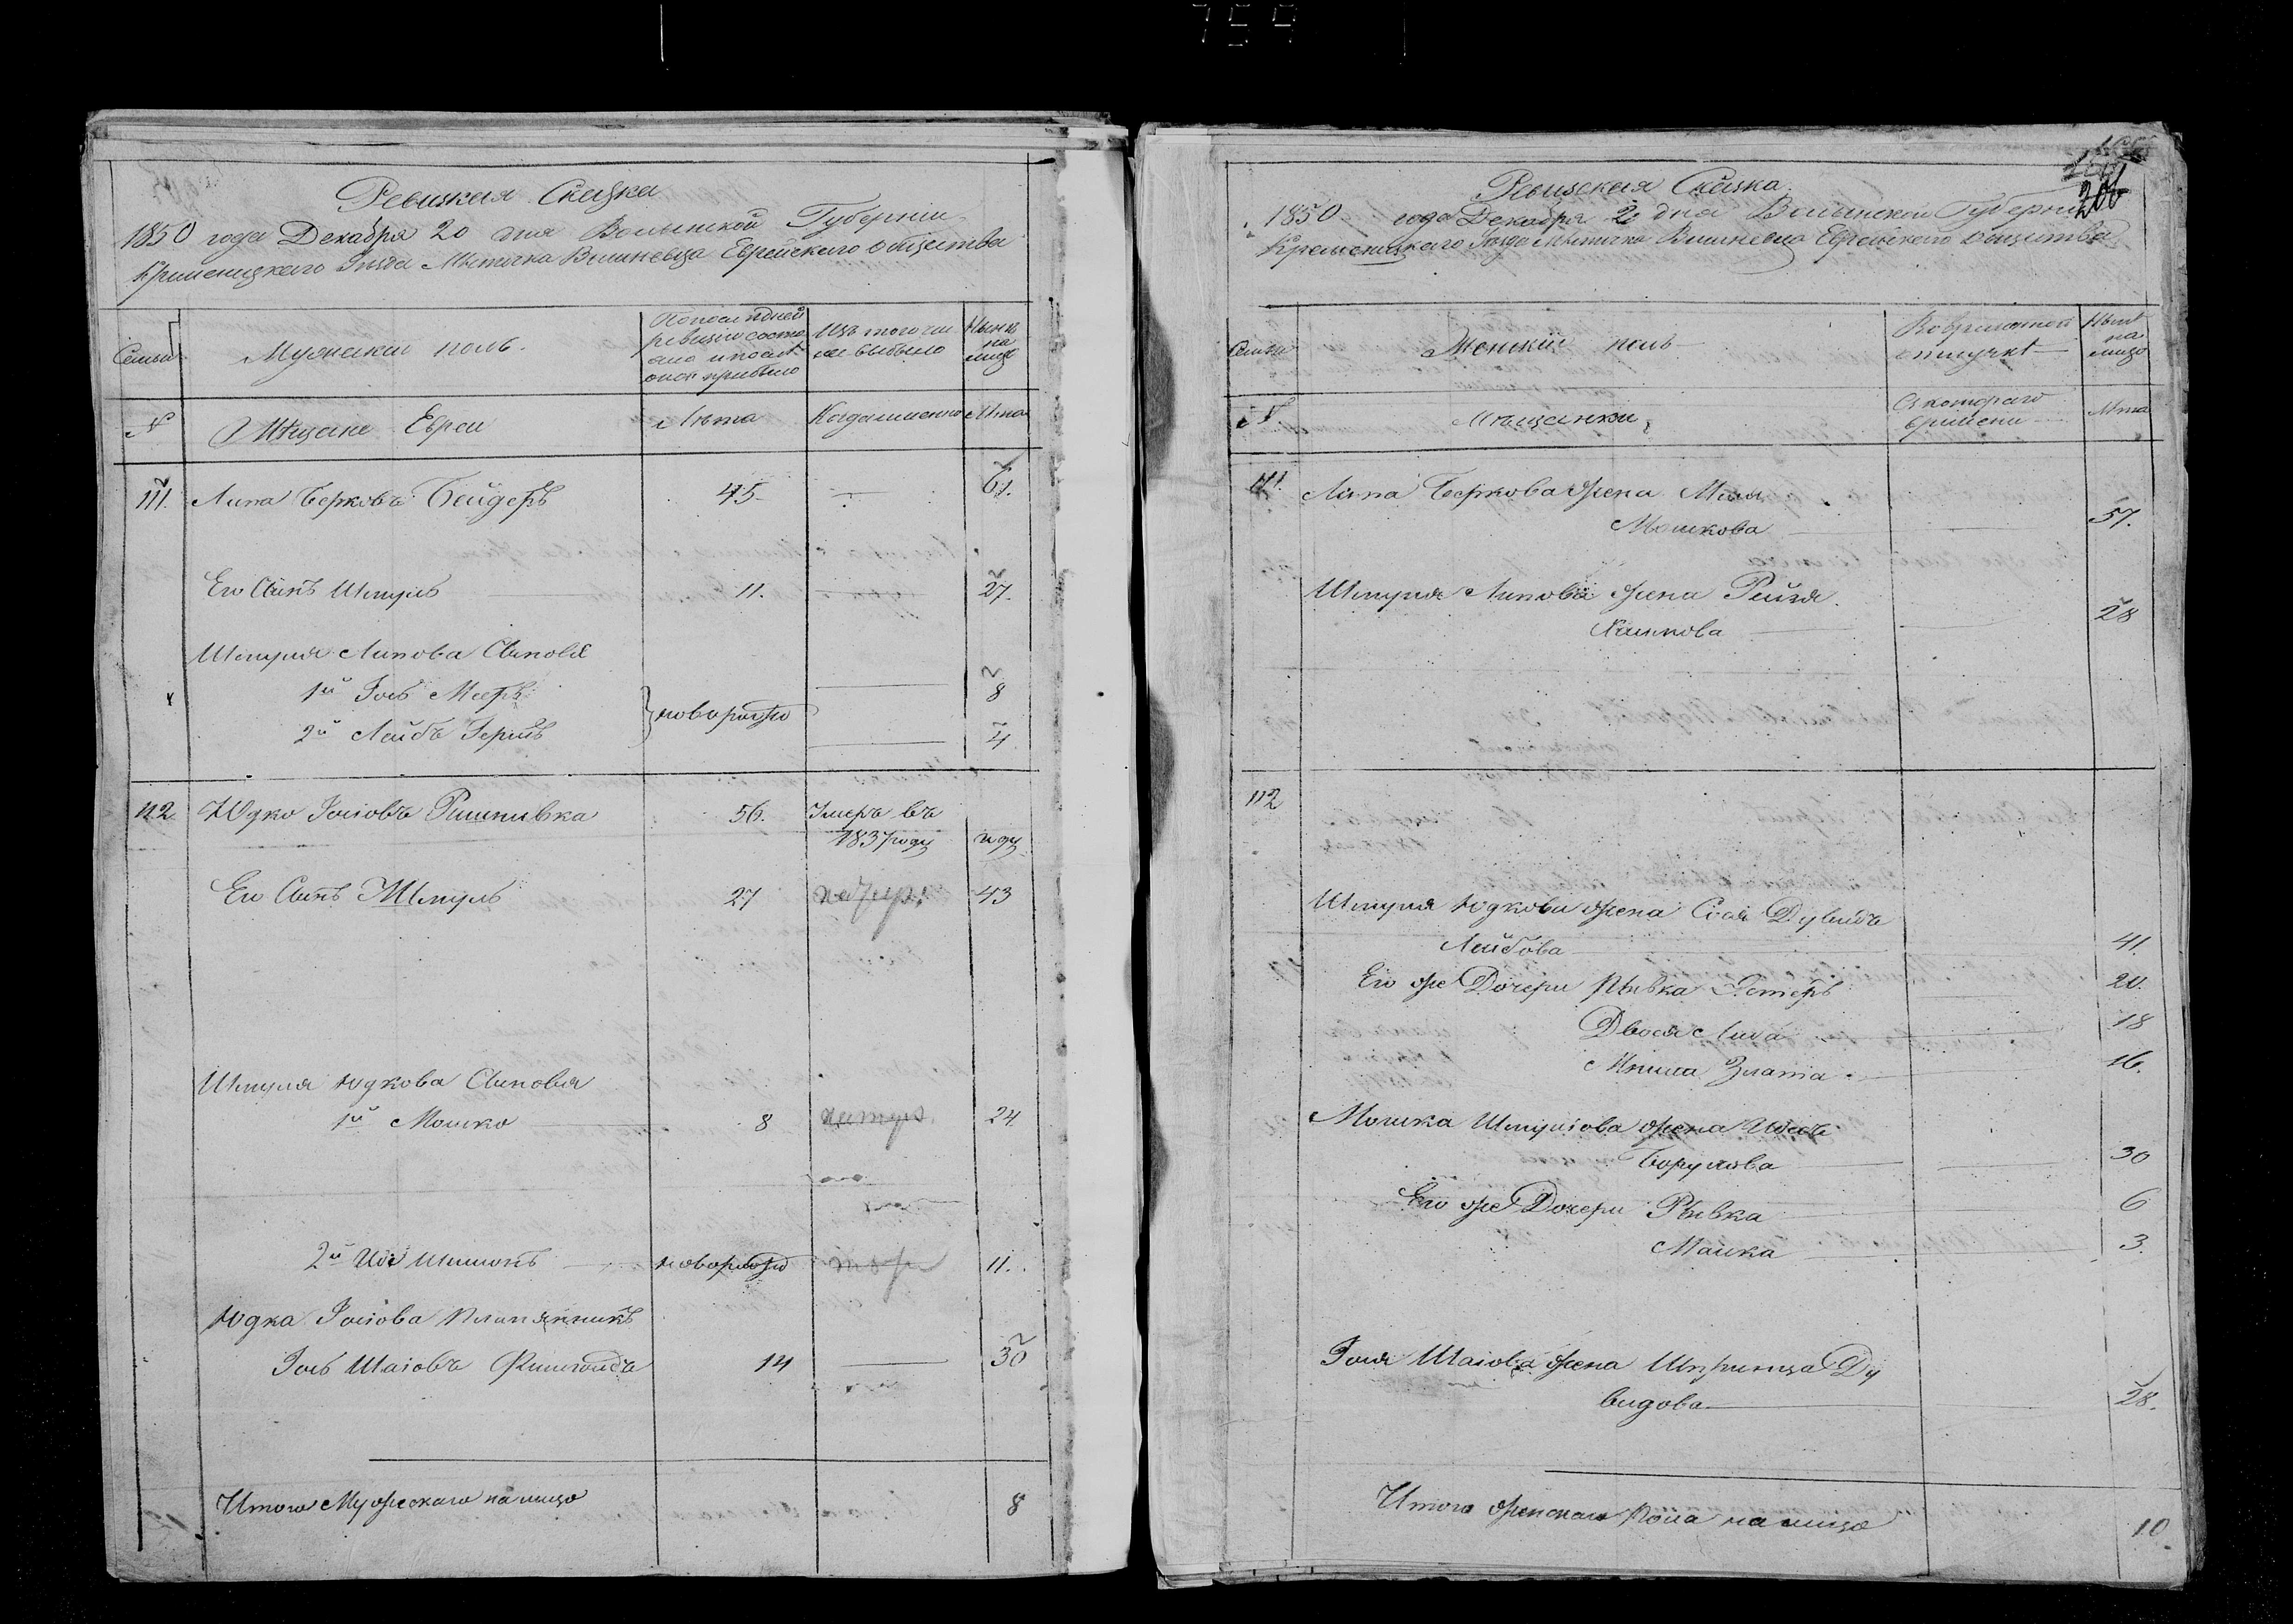 759
Ревизская Сказка
1850 года Декабря 20 дня Волынской Губернии
Кременецкого Уезда Мѣстечка Вишневца Еврейского общества
Семьи
Мужеский полъ.
По последней
ревизии состо
яло и после
оной прибыло
Изъ того чи
сла выбыло
Нынѣ
на
лицо
№
Мѣщане Евреи
Лѣта
Когда именно
Лѣта
111.
Липа Берковъ Бейдеръ
45.
61.
Его Сынъ Шмуль
11.
27.
Шмуля Липова Сыновья
1й Іось Мееръ
новорожд
8
2й Лейбъ Гершъ
4
112
Юдко Іосіовъ
56.
Умеръ въ
1837 году
Его Сынъ Шмуль
27
43
Шмуля Юдкова Сыновья
1й Мошко
8
24
2й Шимонъ
новорожд
11.
Юдка Іосіова Племянникъ
Іось Шаіовъ
14
30
Итого Мужескаго на лицо
8
206
Ревизская Сказка
1850 года Декабря 20 дня Волынской Губернии
Кременецкаго Уезда Мѣстечка Вишневца Еврейского общества
Семьи
Женский полъ
Во временной
отлучкѣ
Нынѣ
на
лицо
№
Мѣщанки
Съ котораго
времени
Лѣта
111.
Липа Беркова жена
Мошкова
57.
Шмуля Липова жена Рейзя
28
112
Шмуля Юдкова жена Сося Дувидъ
Лейбова
41.
Его же Дочери Рывка Эстеръ
20.
Двося
18
Злата
16.
Мошка Шмуліова жена
Борухова
30
Его же Дочери Рывка
6
Малка
3.
Іося Шаіова жена Шпринца Ду
видова
28.
Итого женскаго пола на лицо
10